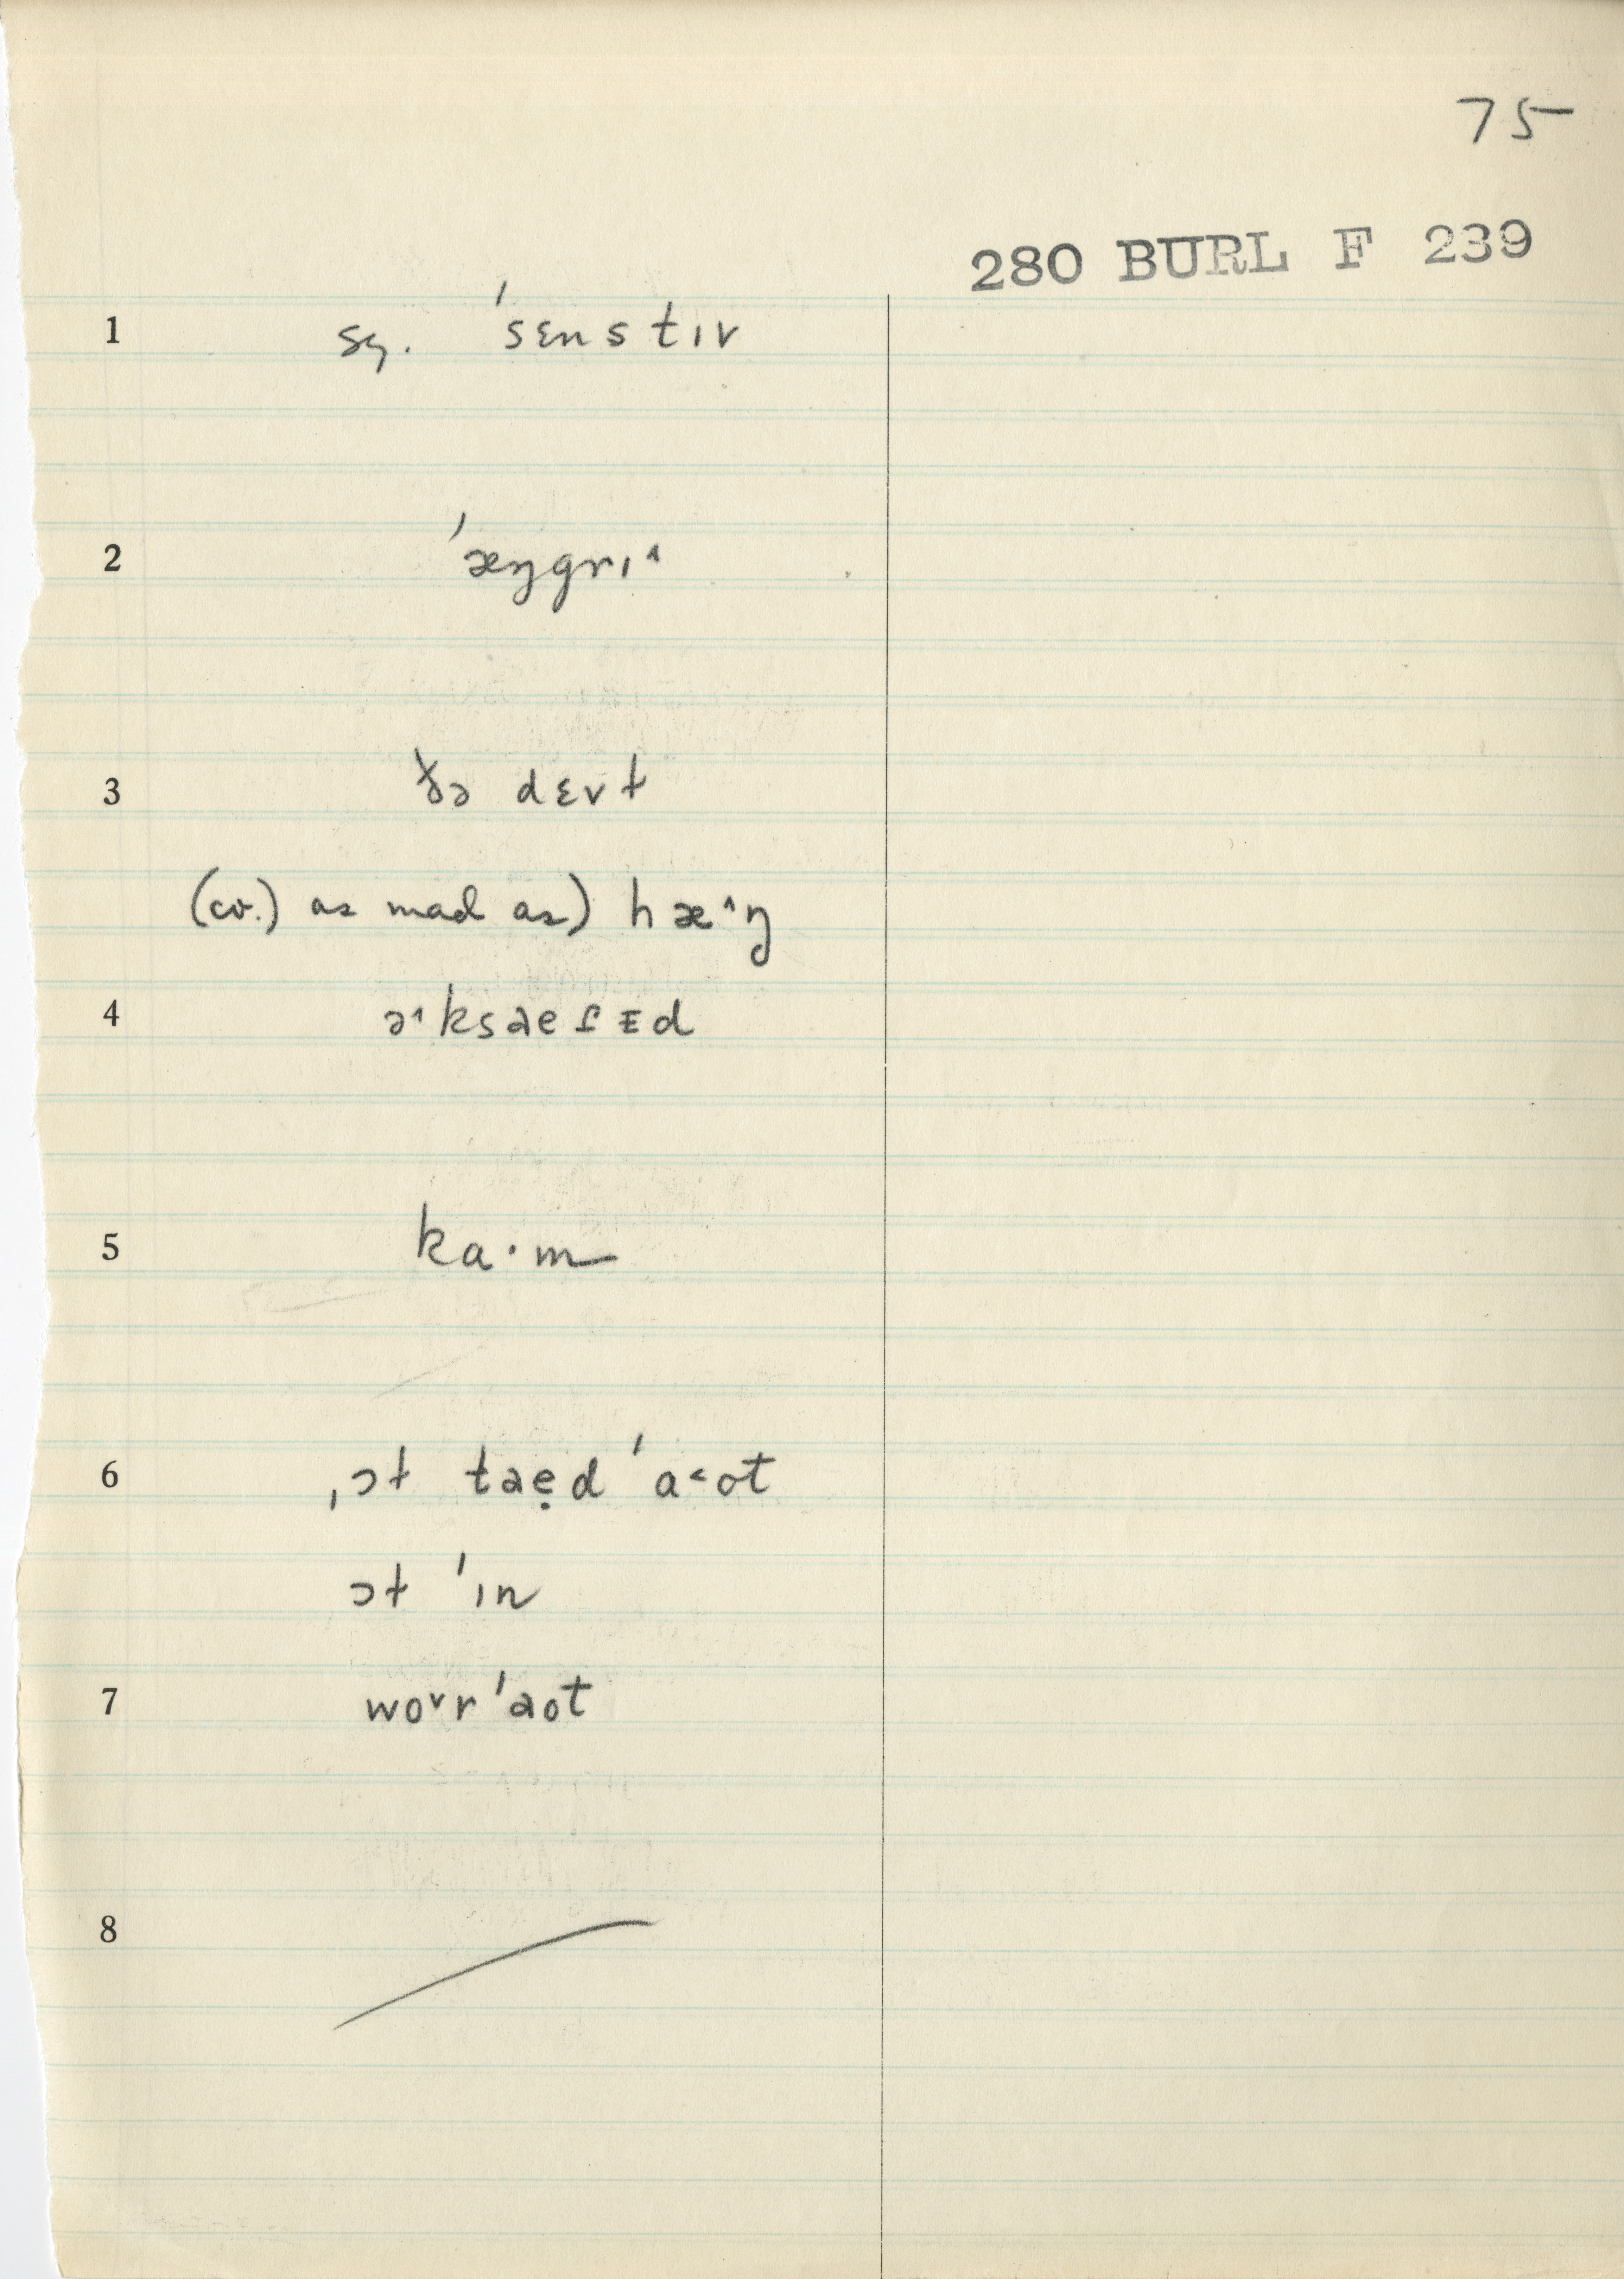 75
280 BURL F 239
1 sg. ˈsɛnstɪv
2 ˈæŋgrɪ˄
3 ðə dɛvɫ
(cv.) as mad as) hæ˄ŋ
4 ə˄ksaesᴇd
5 ka·m
6 ˌɔɫ taẹd ˈa˂ot
ɔɫ ˈɪn
7 wo˅rˈaot
8